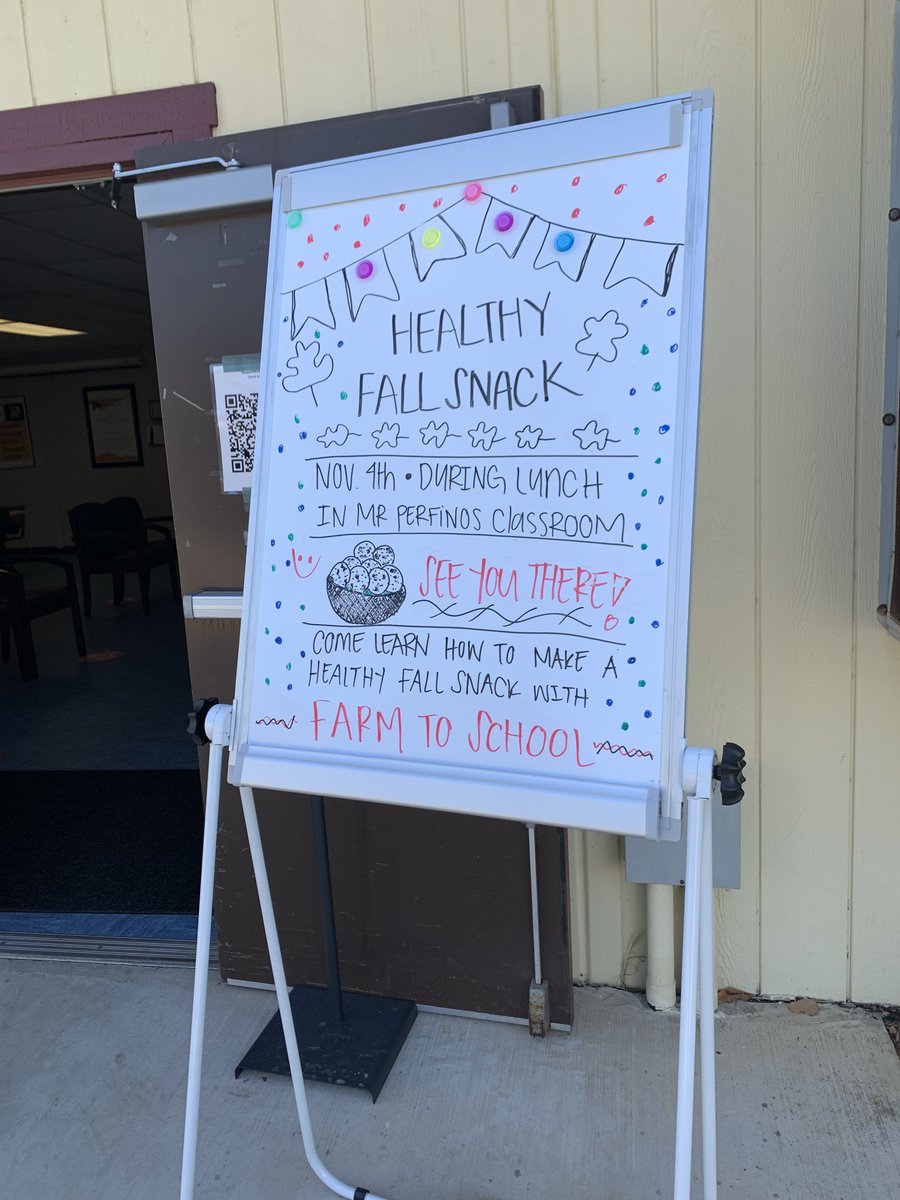 HEALTHY
FALL SNACK
NOV. 4th • DURING LUNCH
IN MR PERFINOS CLASSROOM
SEE YOU THERE
COME LEARN HOW TO MAKE A
HEALTHY FALL SNACK WITH
FARM TO SCHOOL